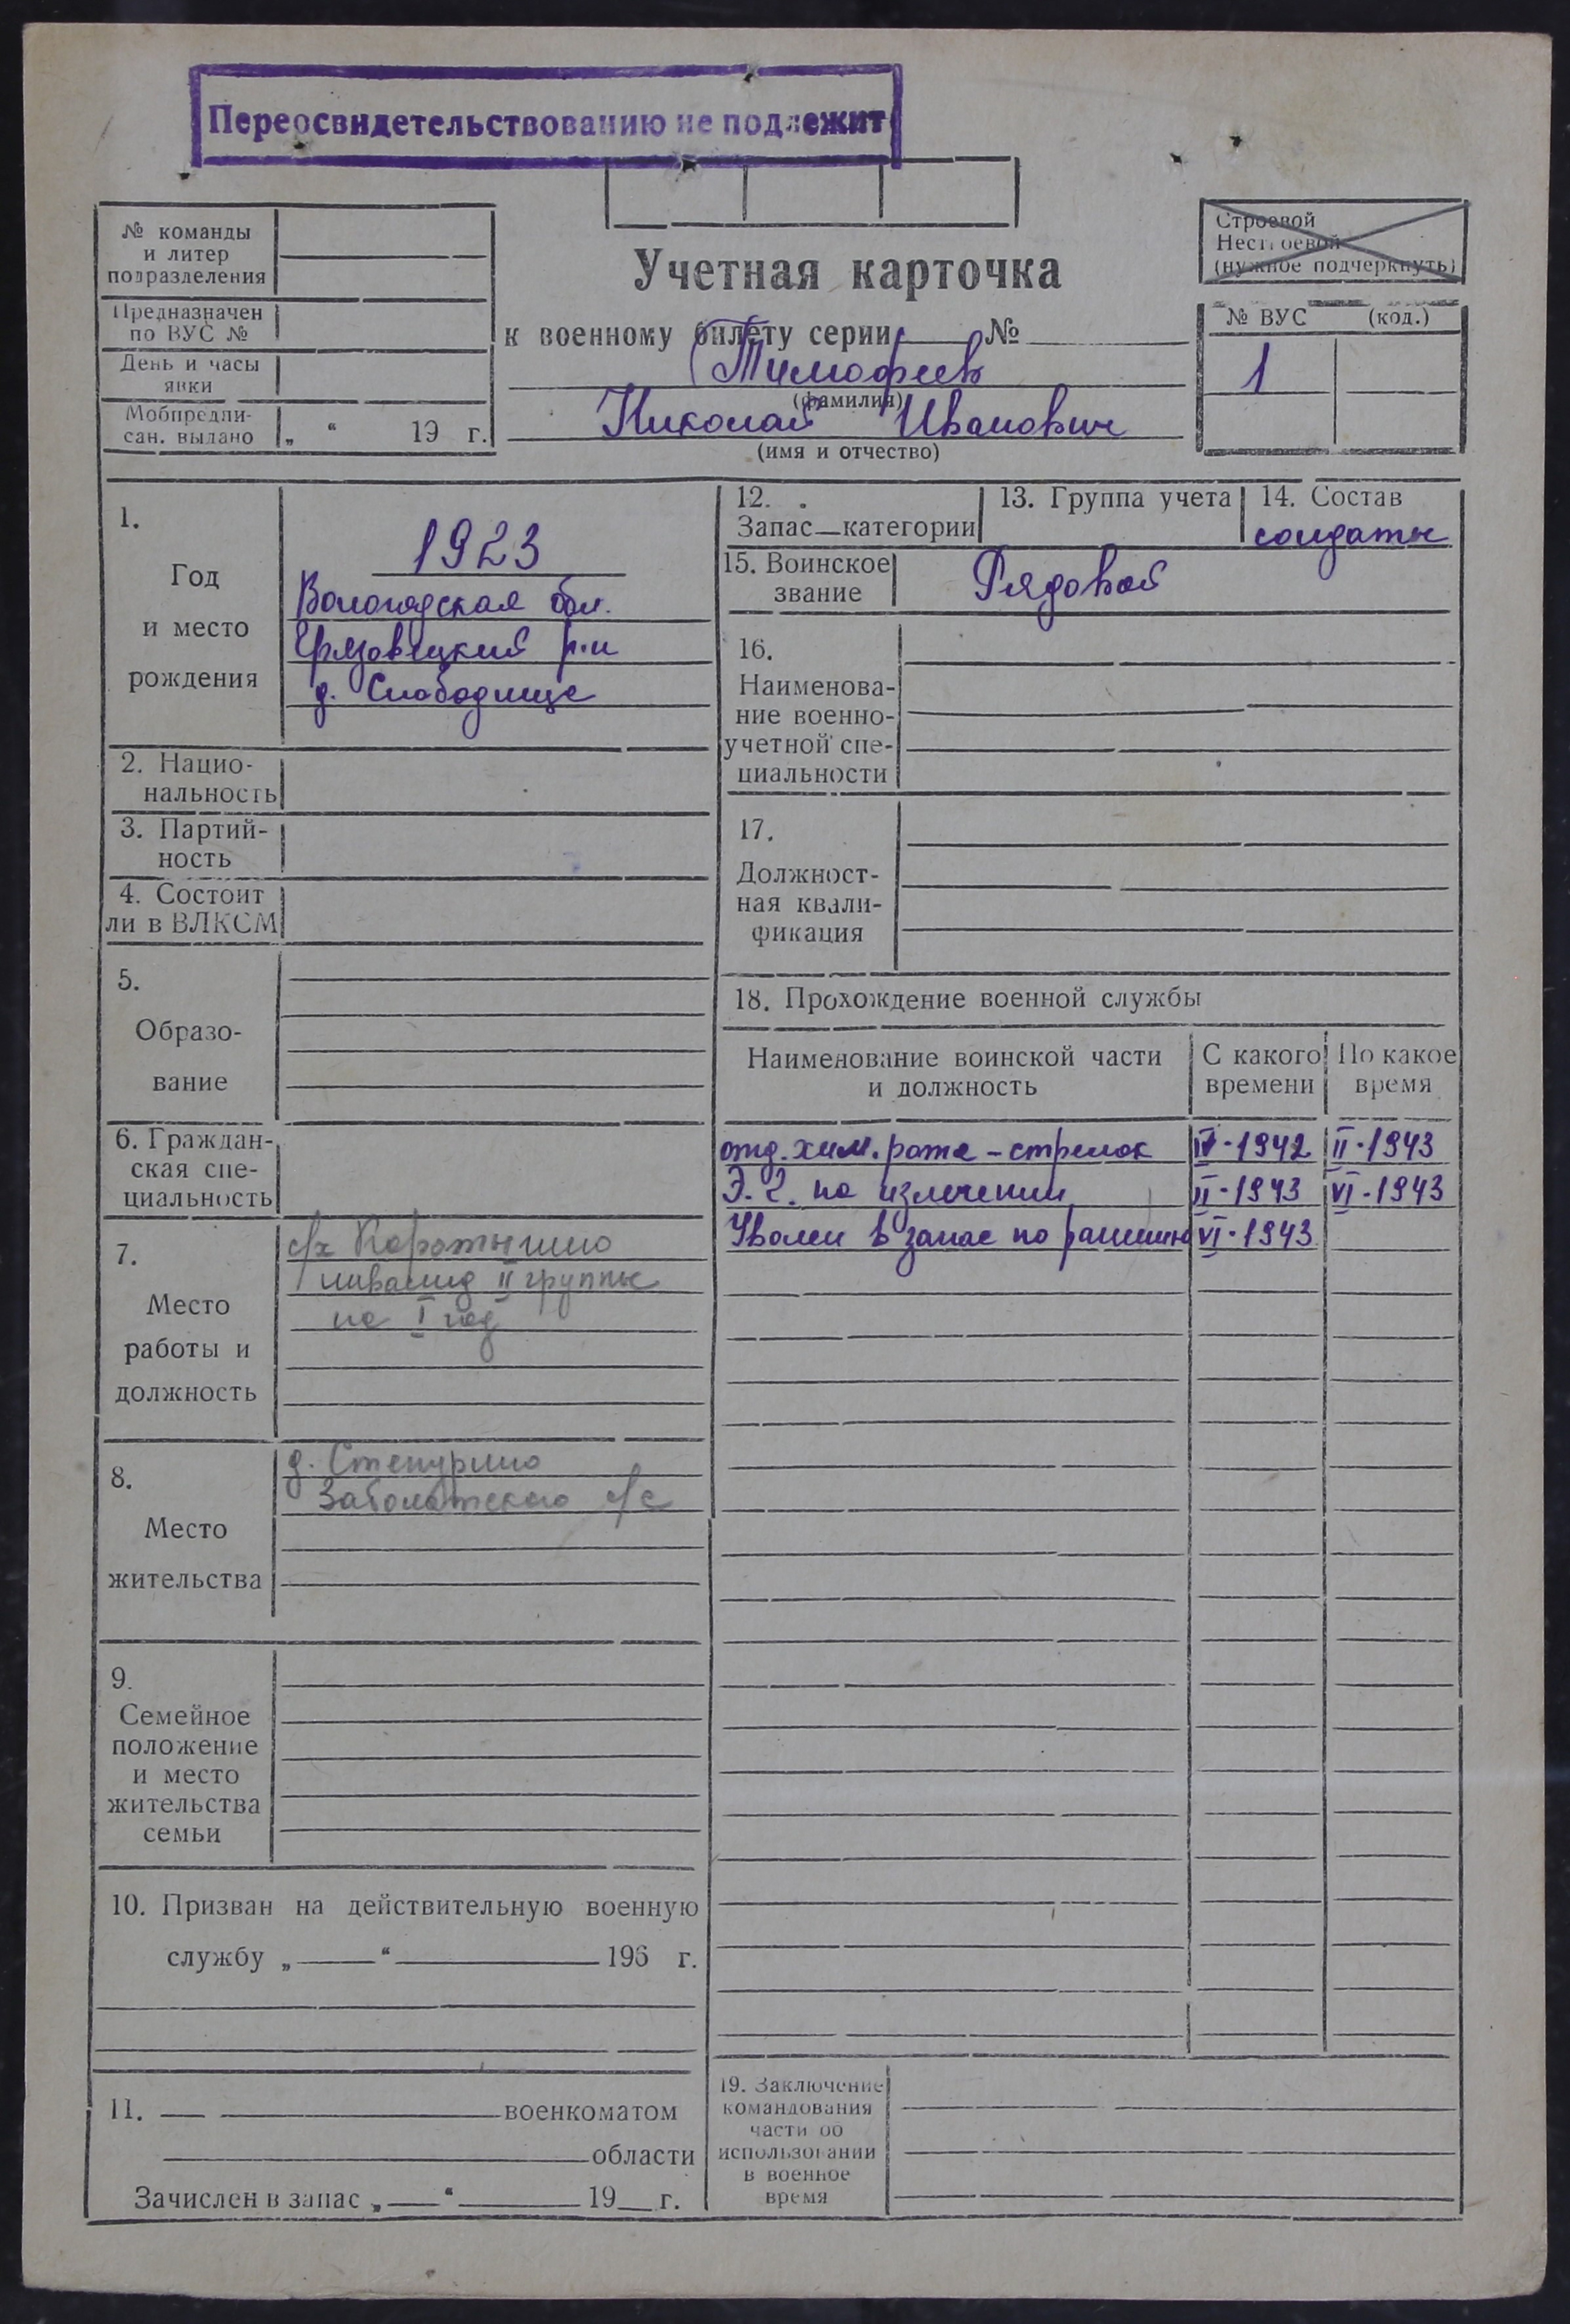 Переосвидетельствованию не подлежит
№ команды
и литер
подразделения
Предназначен
по ВУС №
День и часы
явки
Мобпредпи-
сан. выдано
„ “ 19 г.
Учетная карточка
к военному билету серии № 
Тимофеев
(фамилия)
Николай Иванович
(имя и отчество)
Строевой
Нестроевой
(нужное подчеркнуть)
№ ВУС (код.)
1
1.
Год
и место
рождения
1923
Вологодская обл.
Грязовецкий р-н
д. Слободище
2. Нацио-
нальность
3. Партий-
ность
4. Состоит
ли в ВЛКСМ
5.
Образо-
вание
6. Граждан-
ская спе-
циальность
7.
Место
работы и
должность
с/х Коротыгино
инвалид II группы
на I год
8.
Место
жительства
д. Степурино
Заболотского с/с
9.
Семейное
положение
и место
жительства
семьи
10. Призван на действительную военную
службу „ “ 196 г.
11. военкоматом
области
Зачислен в запас „ “ 19 г.
12.
Запас—категории
13. Группа учета
14. Состав
солдаты
15. Воинское
звание
Рядовой
16.
Наименова-
ние военно-
учетной спе-
циальности
17.
Должност-
ная квали-
фикация
18. Прохождение военной службы
Наименование воинской части
и должность
С какого
времени
По какое
время
отд. хим. рота - стрелок IV-1942 II-1943
Э. Г. на излечении II-1943 VI-1943
Уволен в запас по ранению VI-1943
19. Заключение
командования
части об
использовании
в военное
время